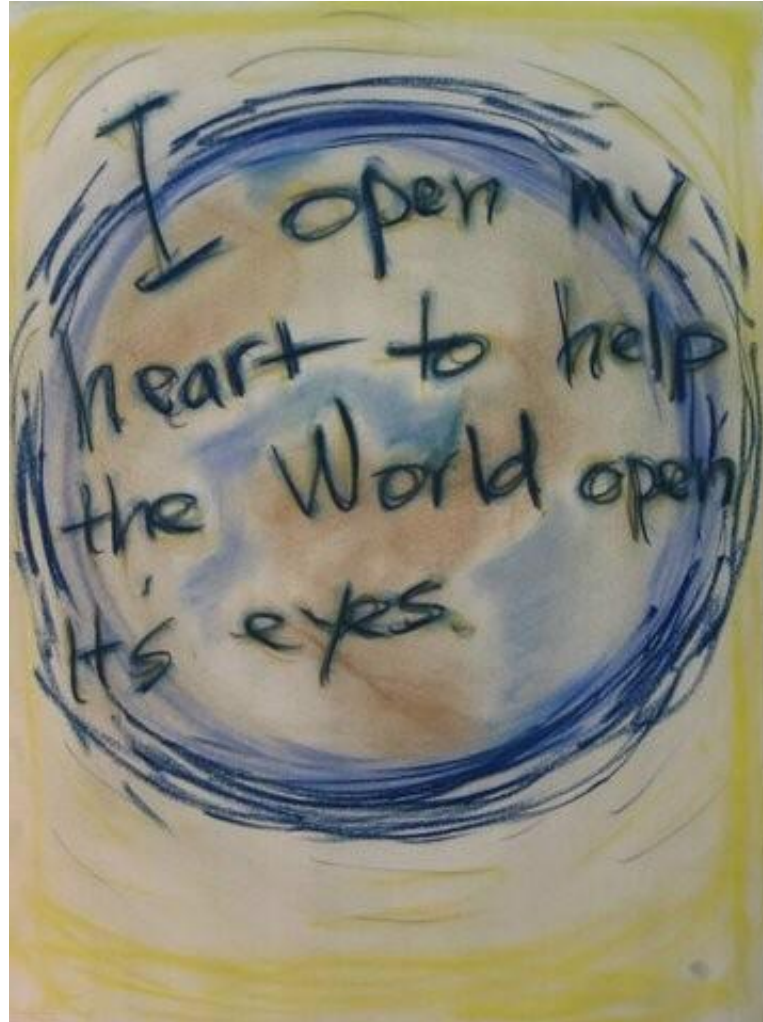 I open my
heart to help
the World open
it's eyes.